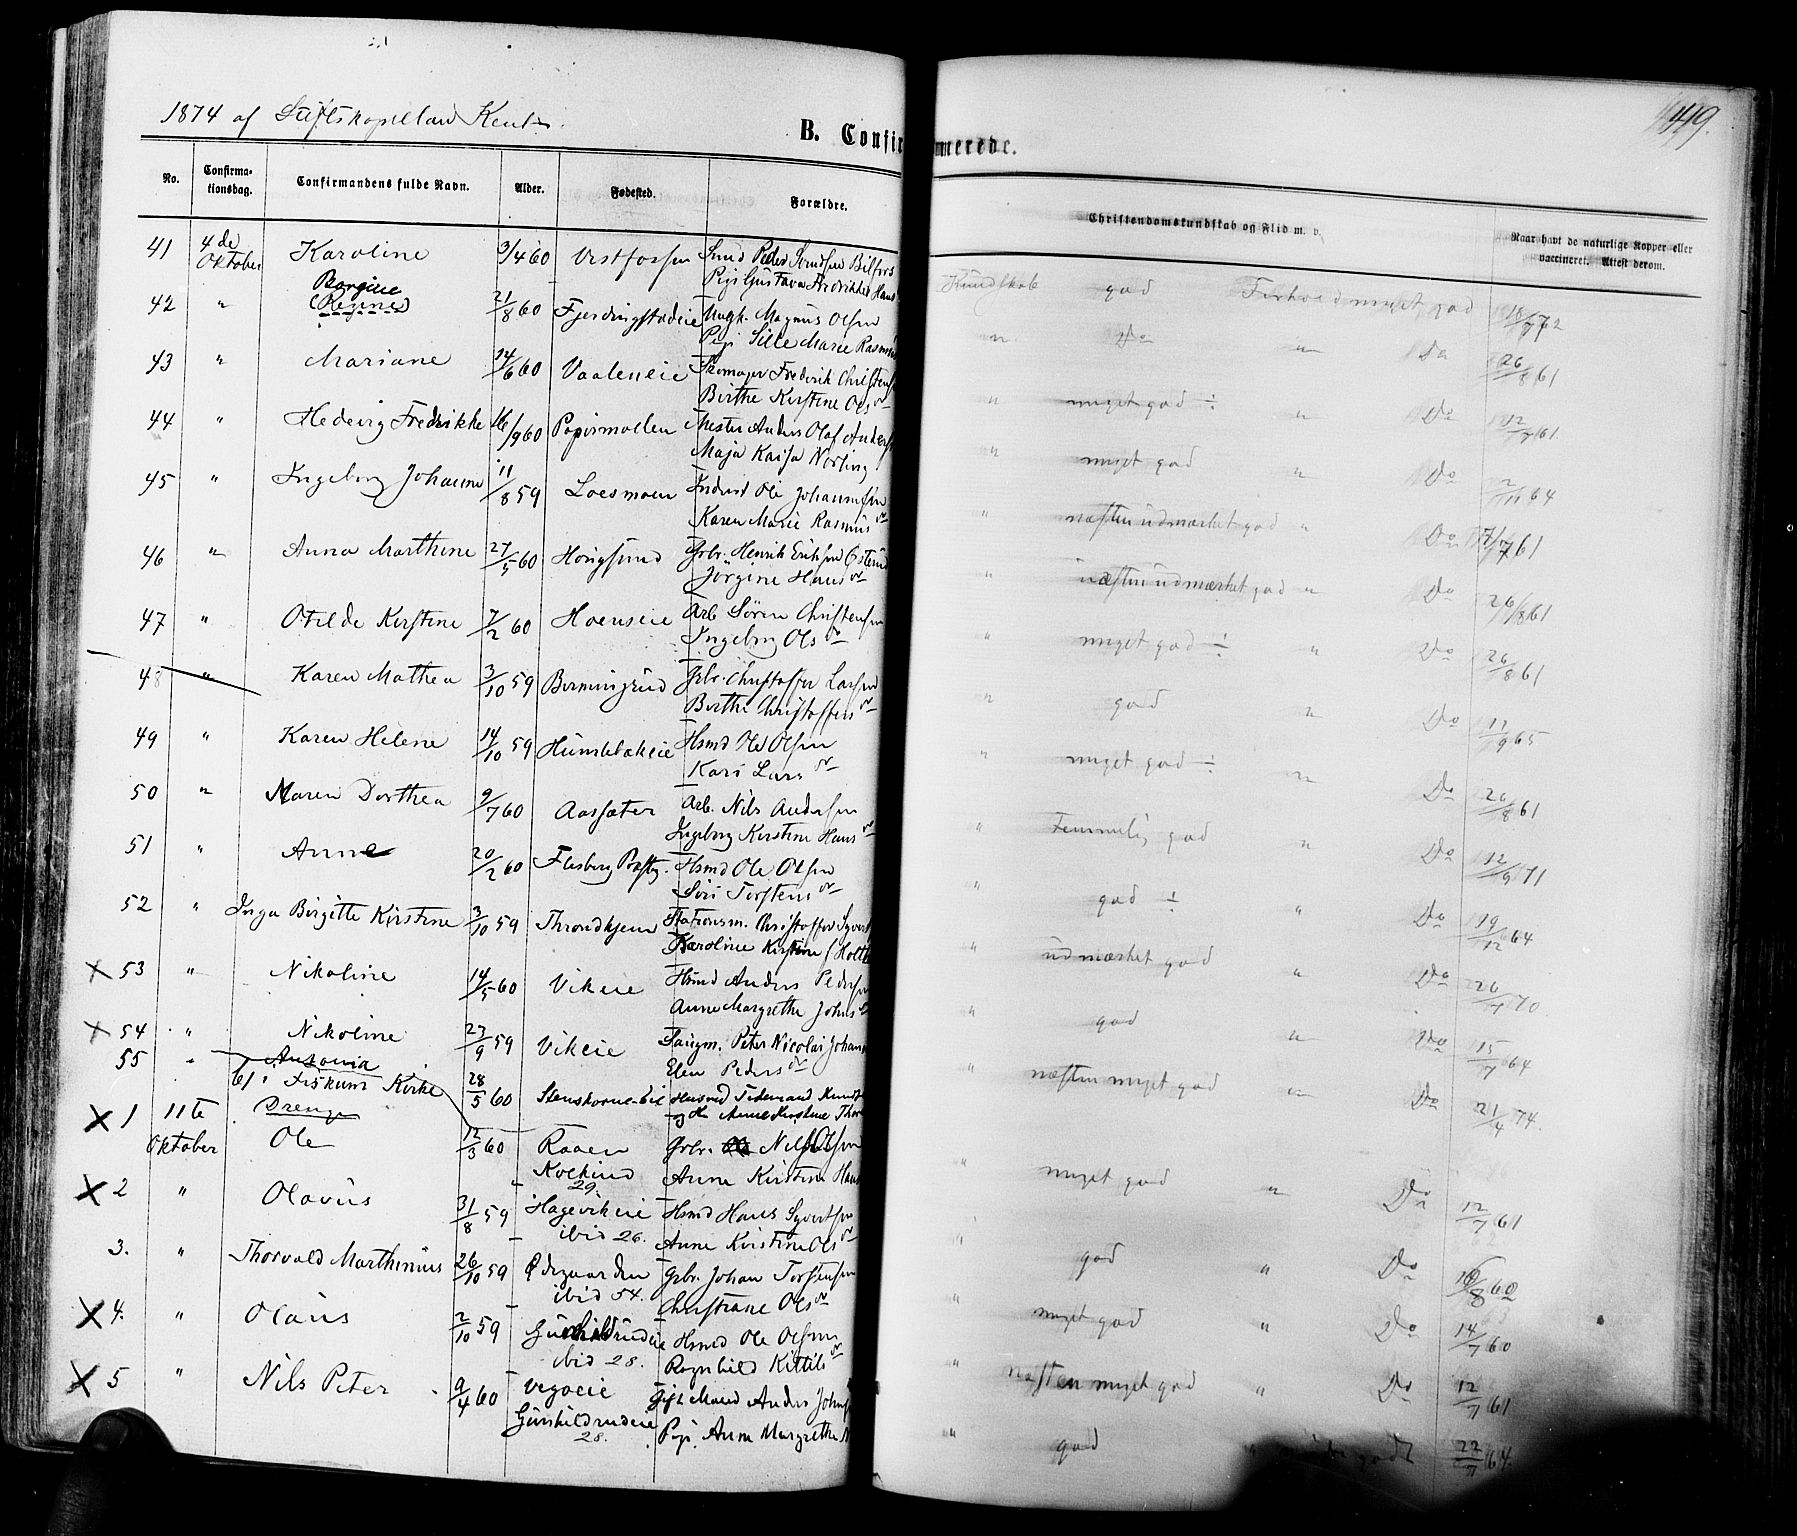 1874 af Stiftskapellan Kent
B. Confirmerede.
449.
No.
Confirma-
tionsdag.
Confirmandens fulde Navn.
Alder.
Fødested.
Forældre.
Christendomskundskab og Flid m. v.
Naar havt de naturlige Kopper eller
vaccineret. Attest derom.
41 4de Oktober Karoline 3/4 60 Vestfossen
Kundskab god Forhold meget god
42 " Borgine 21/8 60 Fjerdingstadeie Magnus Olsen
(Regine)
Pigi Sille Marie
" Do " Do 26/8 61
43 " Mariane 14/6 60 Vaaleneie Skomager Frederik Christens
Birthe Kirstine Ols dr
" meget god ÷ " Do
44 " Hedevig Fredrikke 16/9 60 Papirmøllen Mester Anders Olaf Anders
Maja Kaisa Norling
" meget god " Do 2/11 64
45 " Ingeborg Johanne 11/8 59 Loesmoen Inderst Ole Johannesen
Karen Marie Rasmus dr
" næsten udmærket god " Do 17/7 61
46 " Anna Marthine 27/5 60 Hougsund Gbr. Henrik Eriksen
Jørgine Hans dr
" næsten udmærket god " Do 26/8 61
47 " Otelde Kirstine 7/2 60 Hoenseie Arb Søren Christensen
Ingeborg Ols dr
" meget god ÷ " Do 26/8 61
48 " Karen Mathea 3/10 59 Bermingrud Gbr. Christoffer Larsen
Birthe Christoffers dr
" god " Do 17/9 65
49 " Karen Helene 14/10 59 Humlebækeie Hsmd Ole Olsen
Kari Lars dr
" meget god ÷ " Do 26/8 61
50 " Maren Dorthea 9/7 60 Aassæter Arb. Nils Andersen
Ingeborg Kirstine Hans dr
" Temmelig god " Do 12/9 71
51 " Anne 20/2 60 Flesberg Præstg. Hsmd Ole Olsen
Siri Torstens dr
" god ÷ " Do 19/12 64
52 " Inga Birgitte Kirstine 3/10 59 Throndhjem Stationsm. Christoffer
Karoline Kirstine f Holt
" udmærket god " Do 26/7 70
X 53 " Nikoline 14/5 60 Vikeie Hsmd Anders Pedersen
Anne Margrethe Johns
god " Do 15/7 64
X 54 " Nikoline 23/9 59 Vikeie Peter Nicolai Johan
Elen Peders dr
næsten meget god " Do 21/4 74.
55 " Antonia 28/5 60
Anne Kirstine
b/ i Fiskum Kirke
Drenge
X 1 11te Oktober Ole 12/3 60 Raaen Gbr. Nils Olsen
Kolkind 29. Anne Kirstine Hans
" meget god " Do 12/7 61
X 2 " Olavus 31/8 59 Hagevikeie Hsmd Hans Syvertsen
ibid 26. Anne Kirstine Ols dr
god " Do
3. " Thorvald Marthinius 26/10 59 Ødegaarden Gbr. Johan Torstensen
ibid 54. Christiane Ols dr
" meget god " Do 14/7 60
X 4. " Olaus 2/10 59 Gunhildrudeie Hsmd Ole Olsen
ibid 28. Ragnhild Kittils dr
" næsten meget god " Do 12/7 61
X 5 " Nils Peter 9/4 60 Vegoeie Gift Mand Anders Johns
Gunhildrudeie 28. Pige Anne Margrethe
" god 22/7 64.